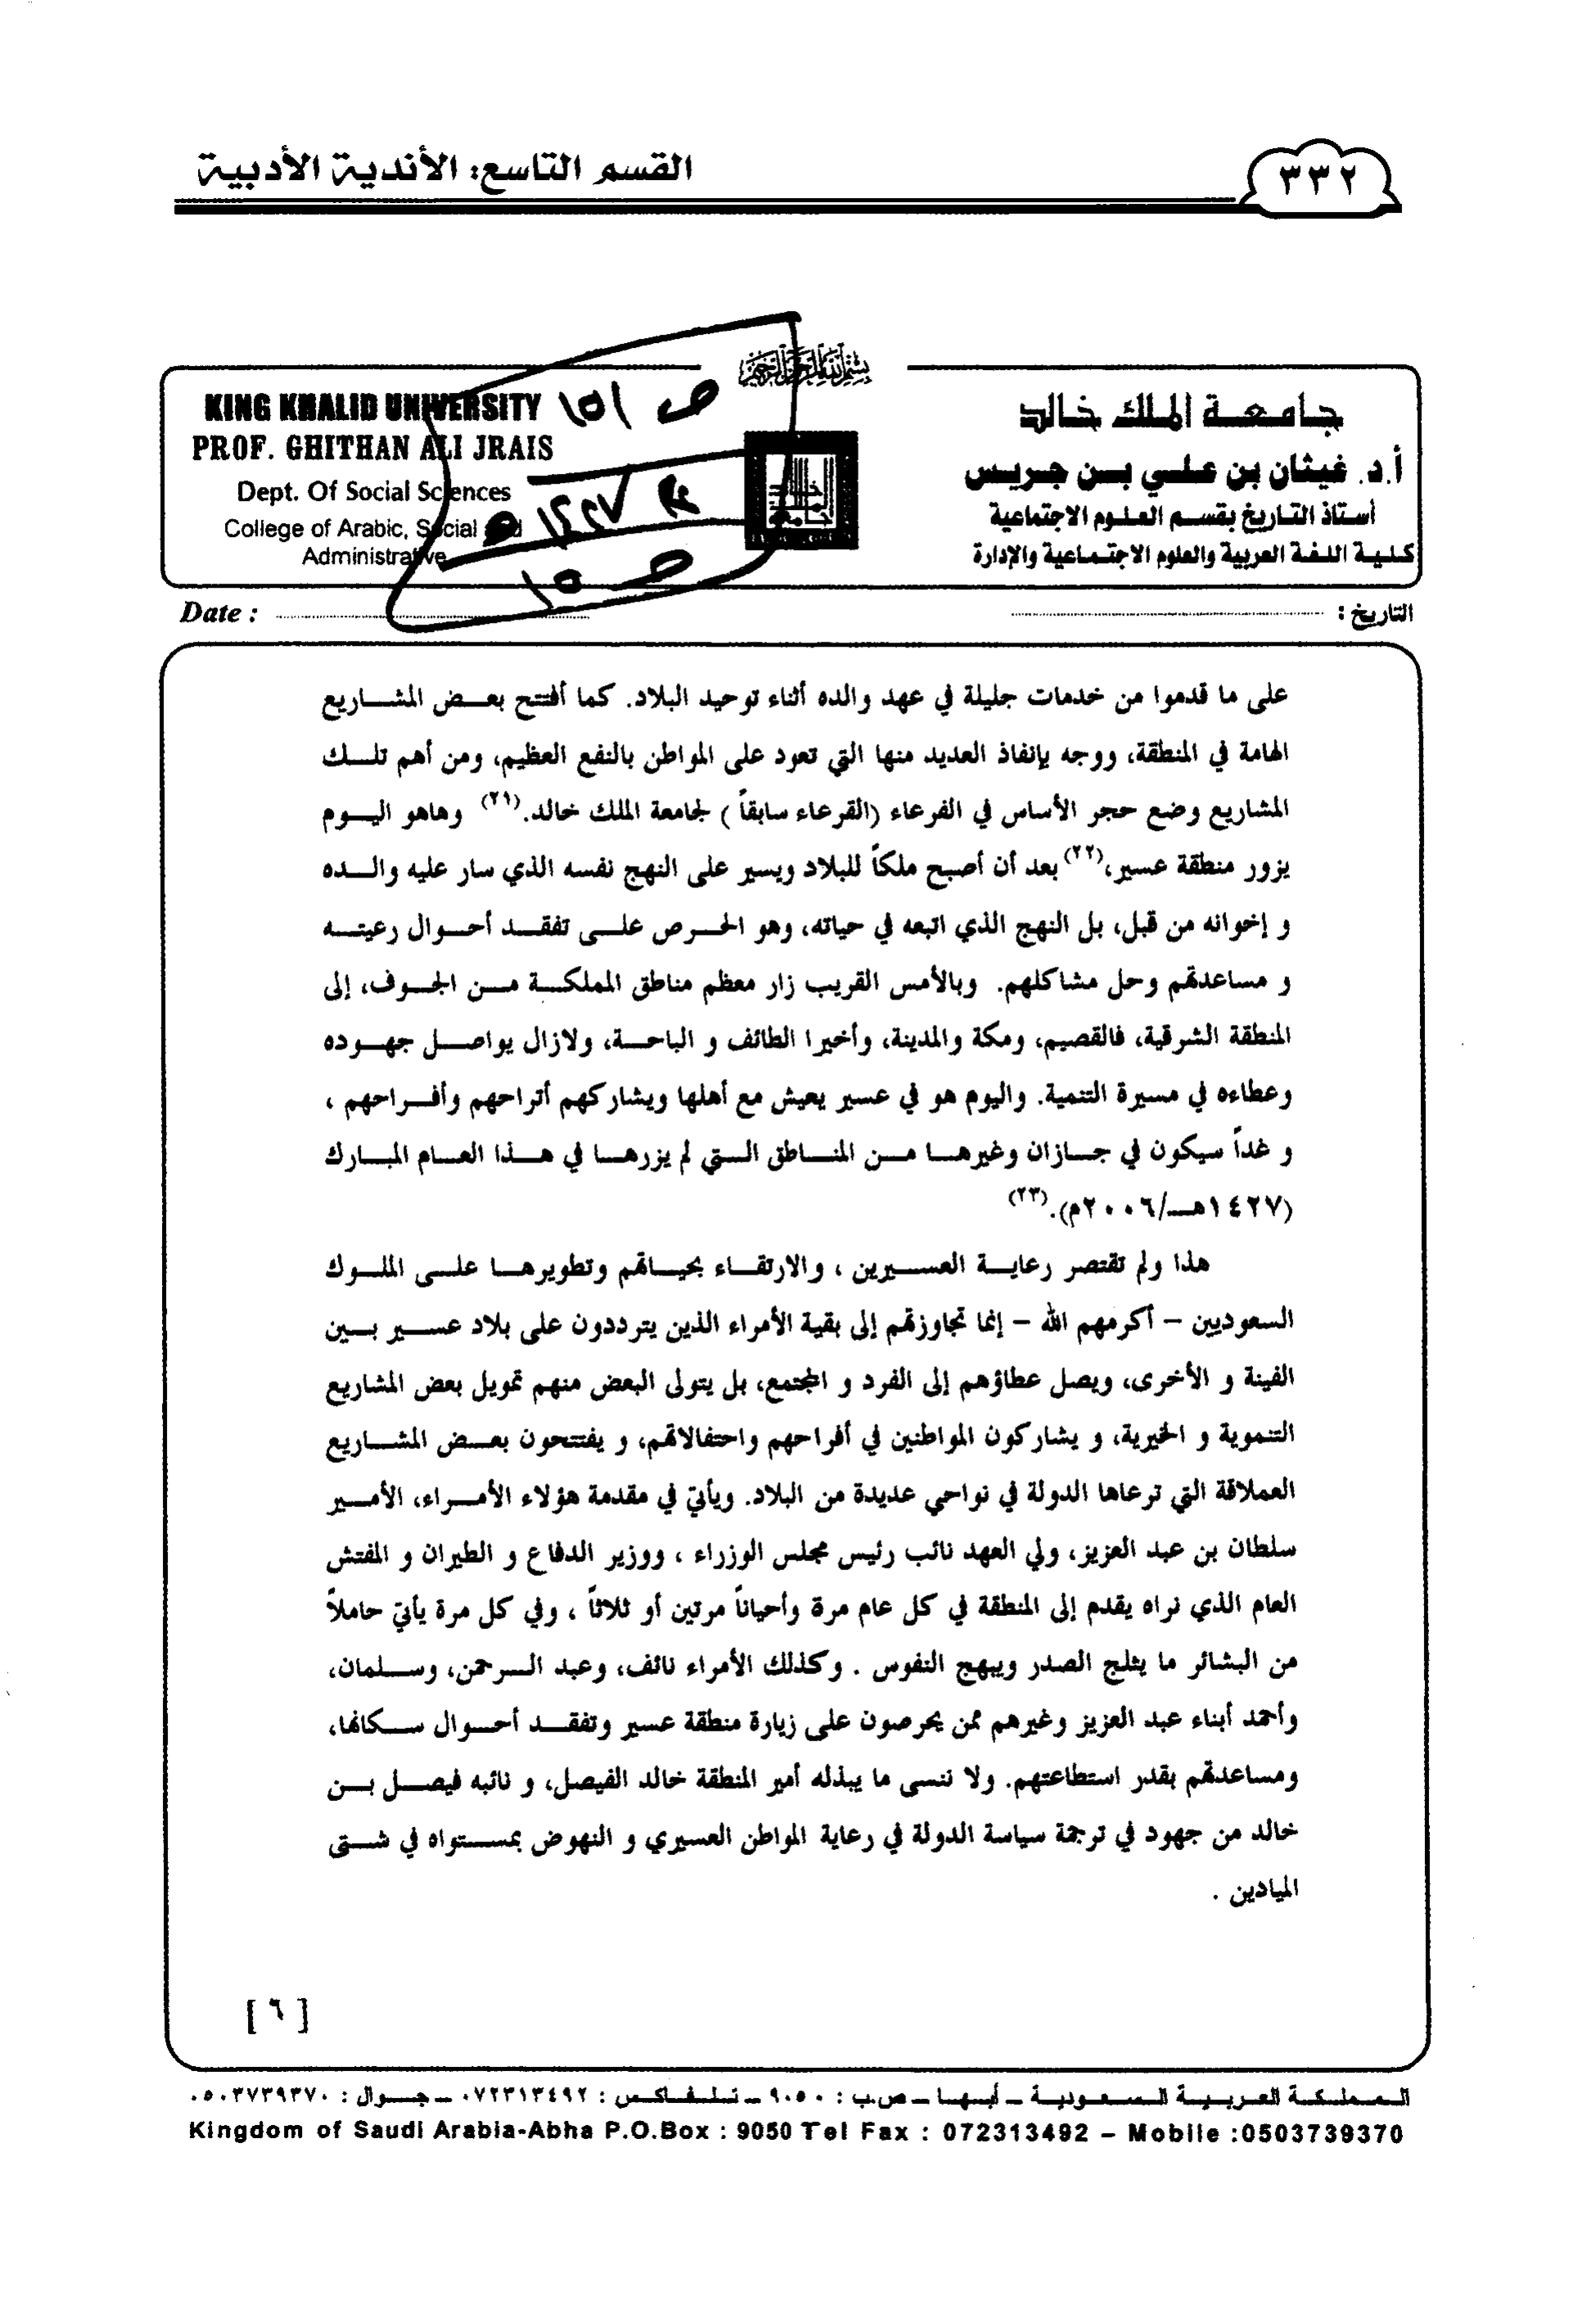 القسم التاسع: الأندية الأدبية
٣٣٢
بسم الله الرحمن الرحيم
KING KHALID UNIVERSITY
PROF. GHITHAN ALI JRAIS
Dept. Of Social Sciences
College of Arabic, Social and
Administrative
ص ١٥١
١٤٢٧ هـ
ص ١٥
جامعة الملك خالد
أ.د. غيثان بن علي بن جريس
أستاذ التاريخ بقسم العلوم الاجتماعية
كلية اللغة العربية والعلوم الاجتماعية والإدارة
Date :
التاريخ :
على ما قدموا من خدمات جليلة في عهد والده أثناء توحيد البلاد. كما أفتتح بعض المشاريع
الهامة في المنطقة، ووجه بإنفاذ العديد منها التي تعود على المواطن بالنفع العظيم، ومن أهم تلك
المشاريع وضع حجر الأساس في الفرعاء (القرعاء سابقاً ) لجامعة الملك خالد.(٢١) وهاهو اليوم
يزور منطقة عسير،(٢٢) بعد أن أصبح ملكاً للبلاد ويسير على النهج نفسه الذي سار عليه والده
و إخوانه من قبل، بل النهج الذي اتبعه في حياته، وهو الحرص على تفقد أحوال رعيته
و مساعدتهم وحل مشاكلهم. وبالأمس القريب زار معظم مناطق المملكة من الجوف، إلى
المنطقة الشرقية، فالقصيم، ومكة والمدينة، وأخيرا الطائف و الباحة، ولازال يواصل جهوده
وعطاءه في مسيرة التنمية. واليوم هو في عسير يعيش مع أهلها ويشاركهم أتراحهم وأفراحهم ،
و غداً سيكون في جازان وغيرها من المناطق التي لم يزرها في هذا العام المبارك
(١٤٢٧هـ/٢٠٠٦م).(٢٣)
هذا ولم تقتصر رعاية العسيرين ، والارتقاء بحياتهم وتطويرها على الملوك
السعوديين – أكرمهم الله – إنما تجاوزتهم إلى بقية الأمراء الذين يترددون على بلاد عسير بين
الفينة و الأخرى، ويصل عطاؤهم إلى الفرد و المجتمع، بل يتولى البعض منهم تمويل بعض المشاريع
التنموية و الخيرية، و يشاركون المواطنين في أفراحهم واحتفالاتهم، و يفتتحون بعض المشاريع
العملاقة التي ترعاها الدولة في نواحي عديدة من البلاد. ويأتي في مقدمة هؤلاء الأمراء، الأمير
سلطان بن عبد العزيز، ولي العهد نائب رئيس مجلس الوزراء ، ووزير الدفاع و الطيران و المفتش
العام الذي نراه يقدم إلى المنطقة في كل عام مرة وأحياناً مرتين أو ثلاثاً ، وفي كل مرة يأتي حاملاً
من البشائر ما يثلج الصدر ويبهج النفوس . وكذلك الأمراء نائف، وعبد الرحمن، وسلمان،
وأحمد أبناء عبد العزيز وغيرهم ممن يحرصون على زيارة منطقة عسير وتفقد أحوال سكانها،
ومساعدتهم بقدر استطاعتهم. ولا ننسى ما يبذله أمير المنطقة خالد الفيصل، و نائبه فيصل بن
خالد من جهود في ترجمة سياسة الدولة في رعاية المواطن العسيري و النهوض بمستواه في شتى
الميادين .
[ ٦ ]
المملكة العربية السعودية – أبها – ص.ب : ٩٠٥٠ – تلفاكس : ٠٧٢٣١٣٤٩٢ – جوال : ٠٥٠٣٧٣٩٣٧٠
Kingdom of Saudi Arabia-Abha P.O.Box : 9050 Tel Fax : 072313492 – Mobile :0503739370